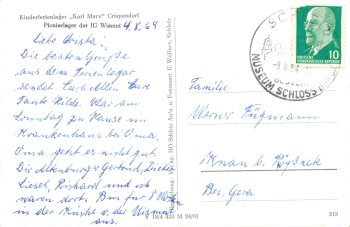 Kinderferienlager „Karl Marx" Crispendorf
Pionierlager der IG Wismut
4.8.64
Liebe Christa!
Die besten Grüße
aus dem Ferienlager
sendet Euch Allen Eure
Tante Hilde. War am
Sonntag zu Hause im
Krankenhaus bei Oma.
Oma geht es nicht gut.
Die Altenburger Gertrud, Dieter
Liesel, Richard und ich
waren dort. Bin für
in der Küche v. der Wismut
aus.
V 15/4 435 M 34/63
MUSEUM SCHLOSS
10
DEUTSCHE DEMOKRATISCHE REPUBLIK
Familie
Werner Fügmann
Knau b. Pößneck
Bez. Gera
213